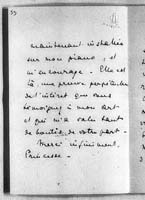 39
maintenant installée
sur mon piano, et
m'encourage. Elle est
là, une preuve perpétuelle
de l'intérêt que vous
témoignez à mon art
et qui m'a valu tant
de bontés de votre part.
Merci infiniment,
Princesse.